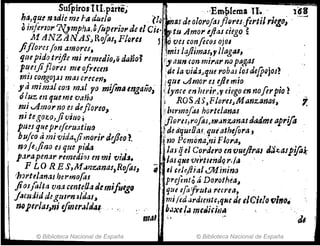 Suſpiros III. parte,
ha, que nadie me ha duelo
ò inferior Nympha, ò ſuperior de el Cie-
MANZANAS, Roſas, Flores
ſi flores ſon amores,
que pido triſte mi remedio, ò daño?
pues ſi flores me ofrecen
mis congojas mas crecen,
y à mi mal con mal yo miſmo engaño,
ò luz en que me vaño
mi Amor no es de floreo,
ni te gozo, ſi vivo;
pues que preferuativo
buſco à mi vida, ſi morir deſeo?
no ſe, ſino es que pida
para penar remedios en mi vida.
FLORES, Manzanas, Roſas,
hortelanas hermoſas
ſi os falta vna centella de mi fuego
ſacudid de guirnaldas,
no perlas, ni eſmeraldas
Emblema II. 168
mas de oloroſas flores fertil riego,
tu Amor eſtàs ciego?
ò ves con feos ojos
mis laſtimas, y llagas,
y aun con mirar no pagas
de la vida, que robas los deſpojos?
que Amor es eſte mio
lynce en herir, y ciego en no ſer pio?
ROSAS, Flores, Manzanas,
hermoſas hortelanas
flores, roſas, manzanas dadme apriſa
de aquellas, que atheſora,
no Pomona, ni Flora,
las que virtiendo ria
el celeſtial Jiminino
preſentò à Dorothea,
que eſa fruta recrea,
mi ſed ardiente, que de el Cielo vino,
baxe la medicina
de
© Biblioteca Nacional de España
© Biblioteca Nacional de España